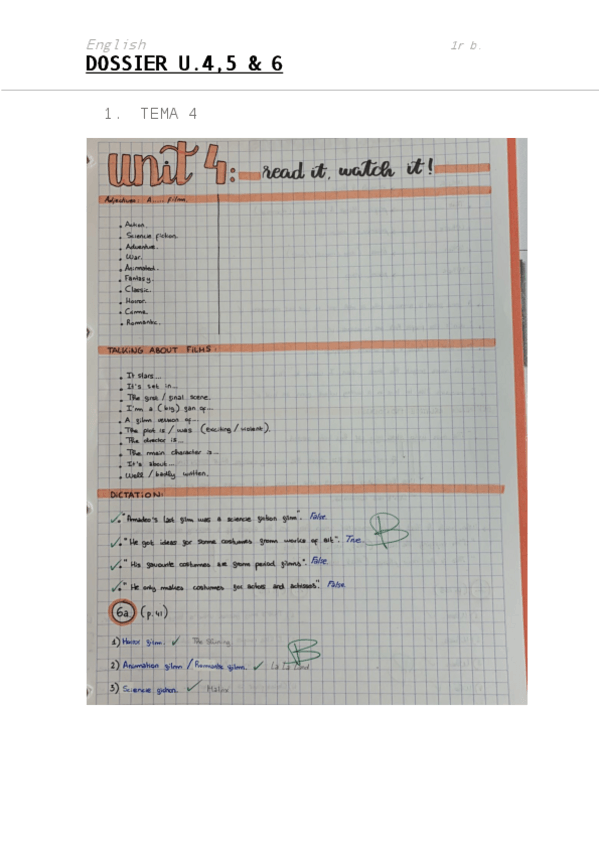 English
1r b.
DOSSIER U.4,5 & 6
1. TEMA 4
unit 4: read it, watch it!
Adjectives: A ..... film.
Action.
Science fiction.
Adventure.
War.
Animated.
Fantasy.
Classic.
Horror.
Crime.
Romantic.
TALKING ABOUT FILMS:
It stars...
It's set in...
The first / final scene.
I'm a (big) fan of...
A film version of...
The plot is / was (exciting / violent).
The director is...
The main character is...
It's about...
Well / badly written.
DICTATION:
"Amadeo's last film was a science fiction film". False.
"He got ideas for some costumes from works of art". True.
"His favourite costumes are from period films". False.
"He only makes costumes for actors and actresses". False.
B
6a (p.41)
1) Horror film. The Shining
2) Animation film / Romantic film. La La Land
B
3) Science fiction. Matrix